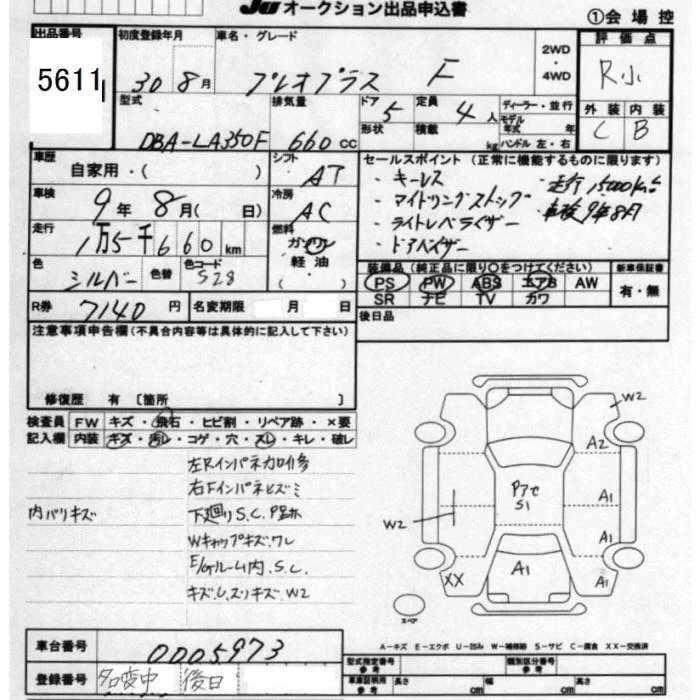 JU オークション出品申込書
①会場控
出品番号 5611
初度登録年月 30 8月
車名・グレード プレオプラス F
2WD・4WD
評価点 R小
外装 C 内装 B
型式 DBA-LA350F
排気量 660 cc
ドア 5 定員 4人
形状 積載 kg
ディーラー・並行
モデル年式 年
ハンドル 左・右
車歴 自家用・( )
シフト AT
車検 9年 8月( 日)
冷房 AC
走行 1万5千660km
燃料 ガソリン 軽油 ( )
色 シルバー 色替 色コード S28
R券 7140円 名変期限 月 日
セールスポイント(正常に機能するものに限ります)
・キーレス ・走行15000Km
・マイドリングストップ ・車検9年8月
・ライトレベライザー
・ドアバイザー
装備品(純正品に限り○をつけてください) 新車保証書
PS PW ABS エアB AW 有・無
SR ナビ TV カワ
後日品
注意事項申告欄(不具合内容等は具体的に記入して下さい)
修復歴 有〔箇所 〕
検査員 FW キズ・飛石・ヒビ割・リペア跡・×要
記入欄 内装 キズ・汚レ・コゲ・穴・スレ・キレ・破レ
左Rインパネ加修
右Fインパネヒズミ
内バリキズ 下廻りS.C.P跡
WキャップキズワレE/gルーム内.S.C.
キズ.U.スリキズ.W2
W2
A2
Pアセ
S1
A1
W2
A1
A1
XX
A1
スペア
A-キズ E-エクボ U-凹み W-補修跡 S-サビ C-腐食 XX-交換済
車台番号 0005973
登録番号 名変中 後日
型式指定番号 参考 類別区分番号 参考
車庫証明用 参考 長さ cm 幅 cm 高さ cm